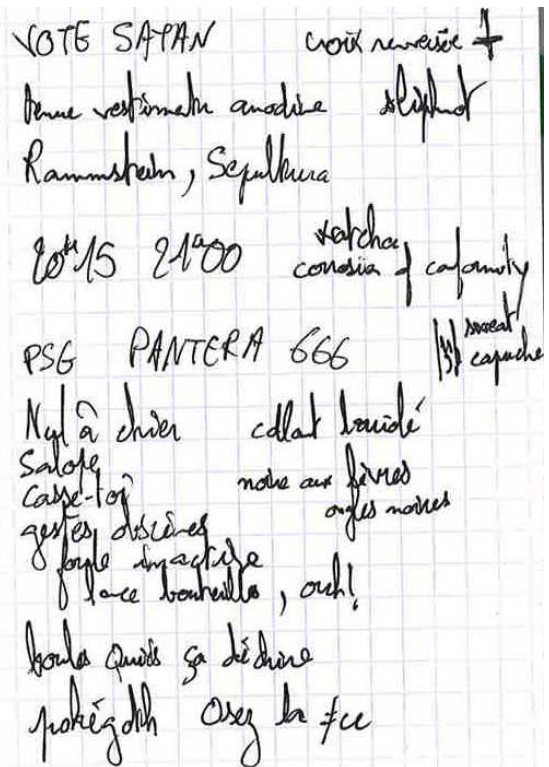 VOTE SATAN croix renversée
tenue vestimentaire anodine slipknot
Rammstein, Sepultura
20h15 21h00 datcha
corrosia of conformity
PSG PANTERA 666 sweat
capuche
Nul à chier collant
Salope
Casse-toi noire aux lèvres
gestes obscènes ongles noires
foule inactive
lance bouteilles, ouh!
boules Quiès ça déchire
Osez la